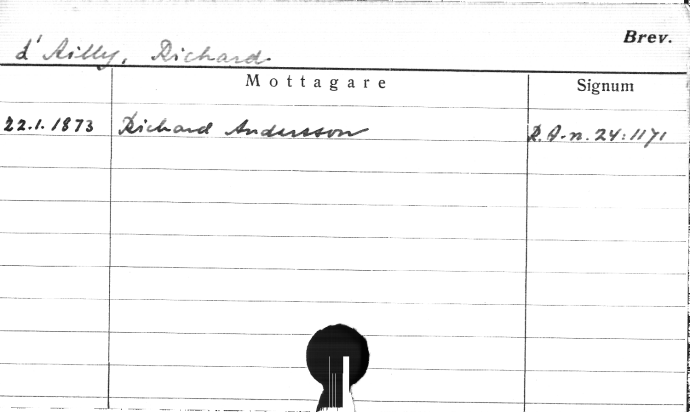 Brev.
d'Ailly, Richard
Mottagare Signum
22.1.1873 Richard Andersson R.A-n. 24:1171